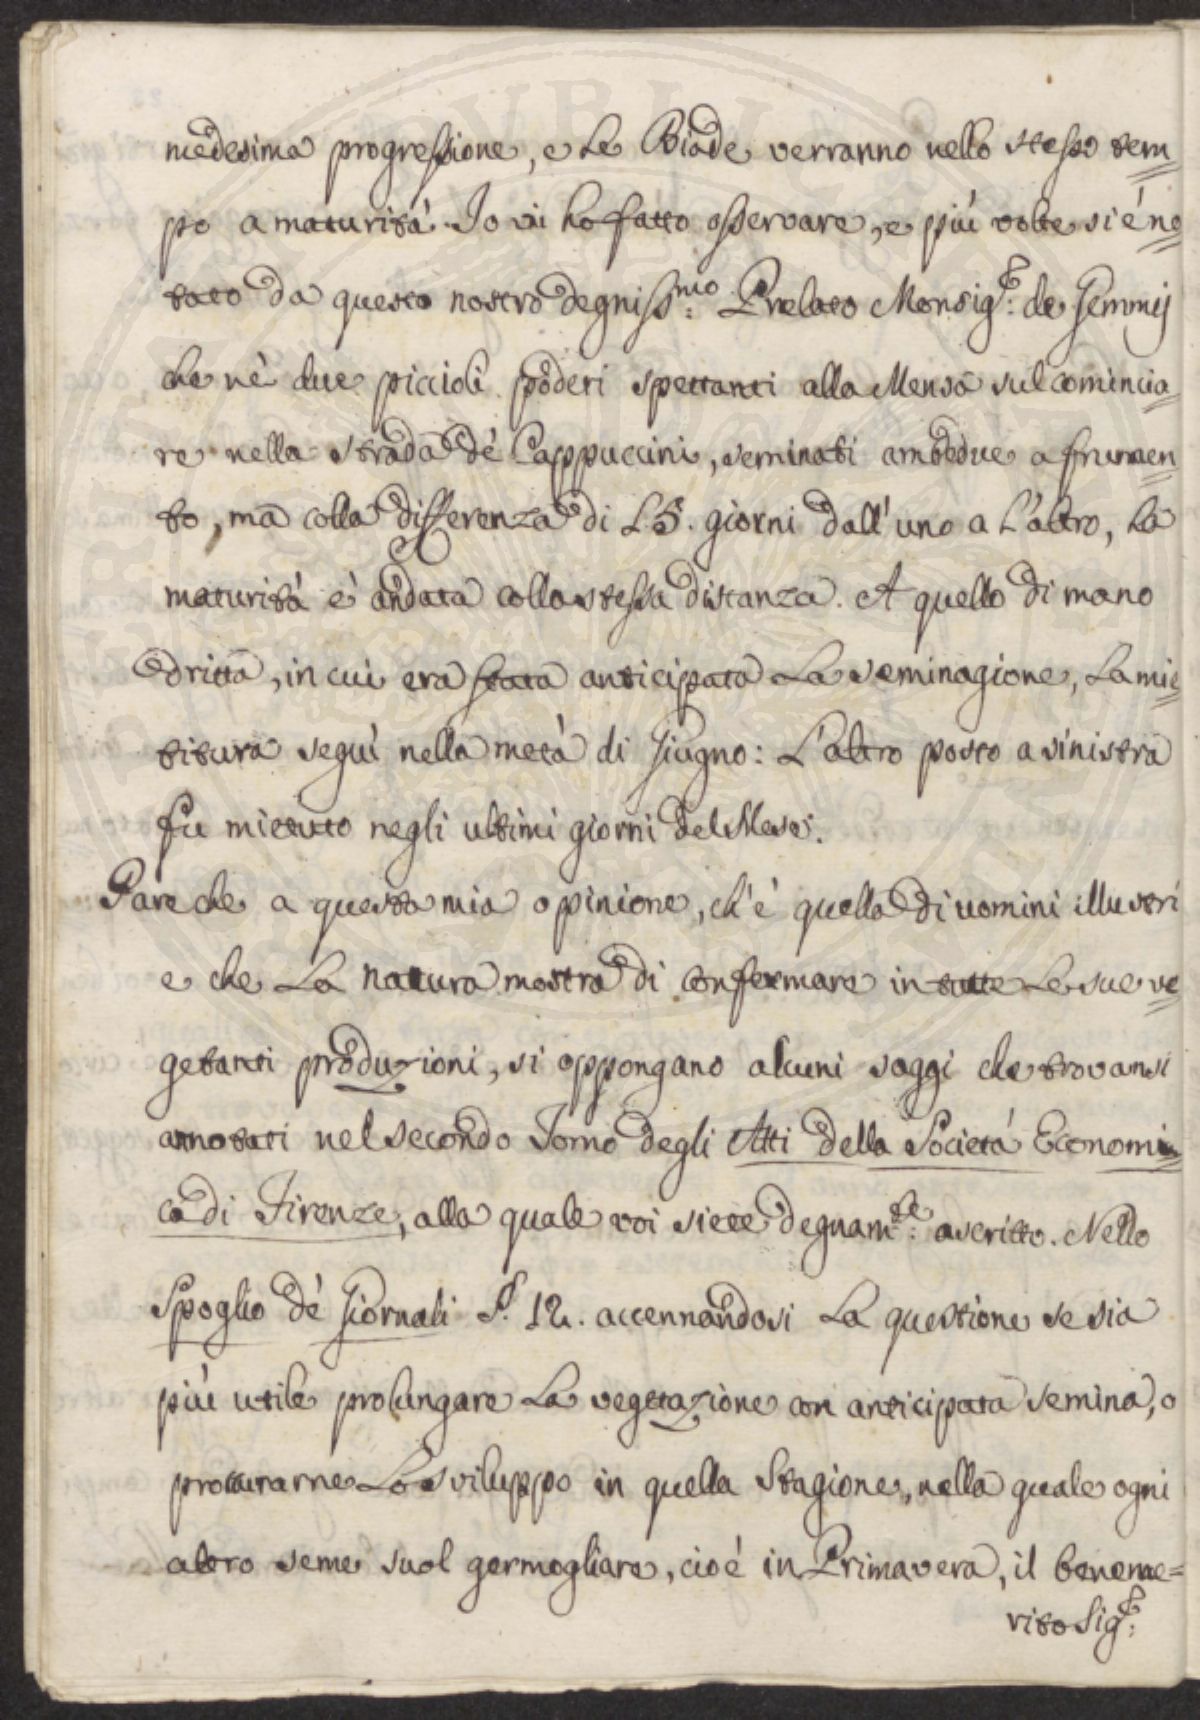 medesima progressione, e le Biade verranno nello stesso tem=
po a maturità. Io vi ho fatto osservare, e più volte si é no=
tato da questo nostro degniss:mo Prelato Monsig.r de Gemmij
che nè due piccioli poderi spettanti alla Mensa sul comincia=
re nella strada dè Cappuccini, seminati ambedue a frumen=
to, ma colla differenza di 15. giorni dall'uno a l'altro, la
maturità è andata colla stessa distanza. A quello di mano
dritta, in cui era stata anticipata la seminagione, la mie=
titura seguì nella metà di Giugno: L'altro posto a sinistra
fu mietuto negli ultimi giorni del Mese.
Pare che a questa mia opinione, ch'è quella di uomini illustri
e che la natura mostra di confermare in tutte le sue ve=
getanti produzioni, si oppongano alcuni saggi che trovansi
annotati nel secondo Tomo degli Atti della Società Economi=
ca di Firenze, alla quale voi siete degnam:te ascritto. Nello
Spoglio dè Giornali §. 12. accennandosi la questione se sia
più utile prolungare la vegetazione con anticipata semina, o
procurarne lo sviluppo in quella Stagione, nella quale ogni
altro seme suol germogliare, cioé in Primavera, il beneme=
rito Sig.r